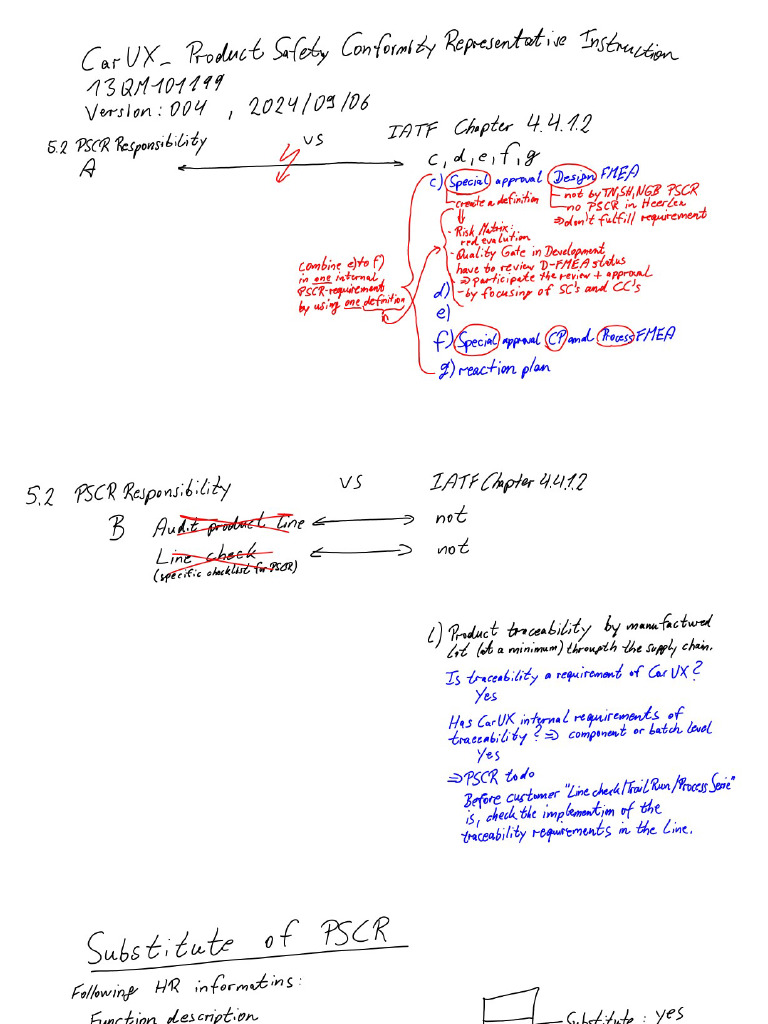 CarUX_ Product Safety Conformity Representative Instruction
13QM101199
Version: 004 , 2024/09/06
5.2 PSCR Responsibility VS IATF Chapter 4.4.1.2
A c, d, e, f, g
c) Special approval Design FMEA
create a definition
- not by TN, SH, NGB PSCR
- no PSCR in Heerlen
⇒ don't fulfill requirement
- Risk Matrix:
red evalution
- Quality Gate in Development
have to review D-FMEA status
⇒ participate the review + approval
- by focusing of SC's and CC's
combine c) to f)
in one internal
PSCR-requirement
by using one definition
in
d)
e)
f) Special approval CP and Process FMEA
g) reaction plan
5.2 PSCR Responsibility VS IATF Chapter 4.4.1.2
B Audit product line not
Line check not
(specific checklist for PSCR)
l) Product traceability by manufactured
Lot (at a minimum) throupth the supply chain.
Is traceability a requirement of CarUX?
Yes
Has CarUX internal requirements of
traceability? ⇒ component or batch level
Yes
⇒ PSCR to do
Before customer "Line check/Trail Run/Process Serie"
is, check the implemention of the
traceability requirements in the Line.
Substitute of PSCR
Following HR informatins:
Function description
Substitute: yes